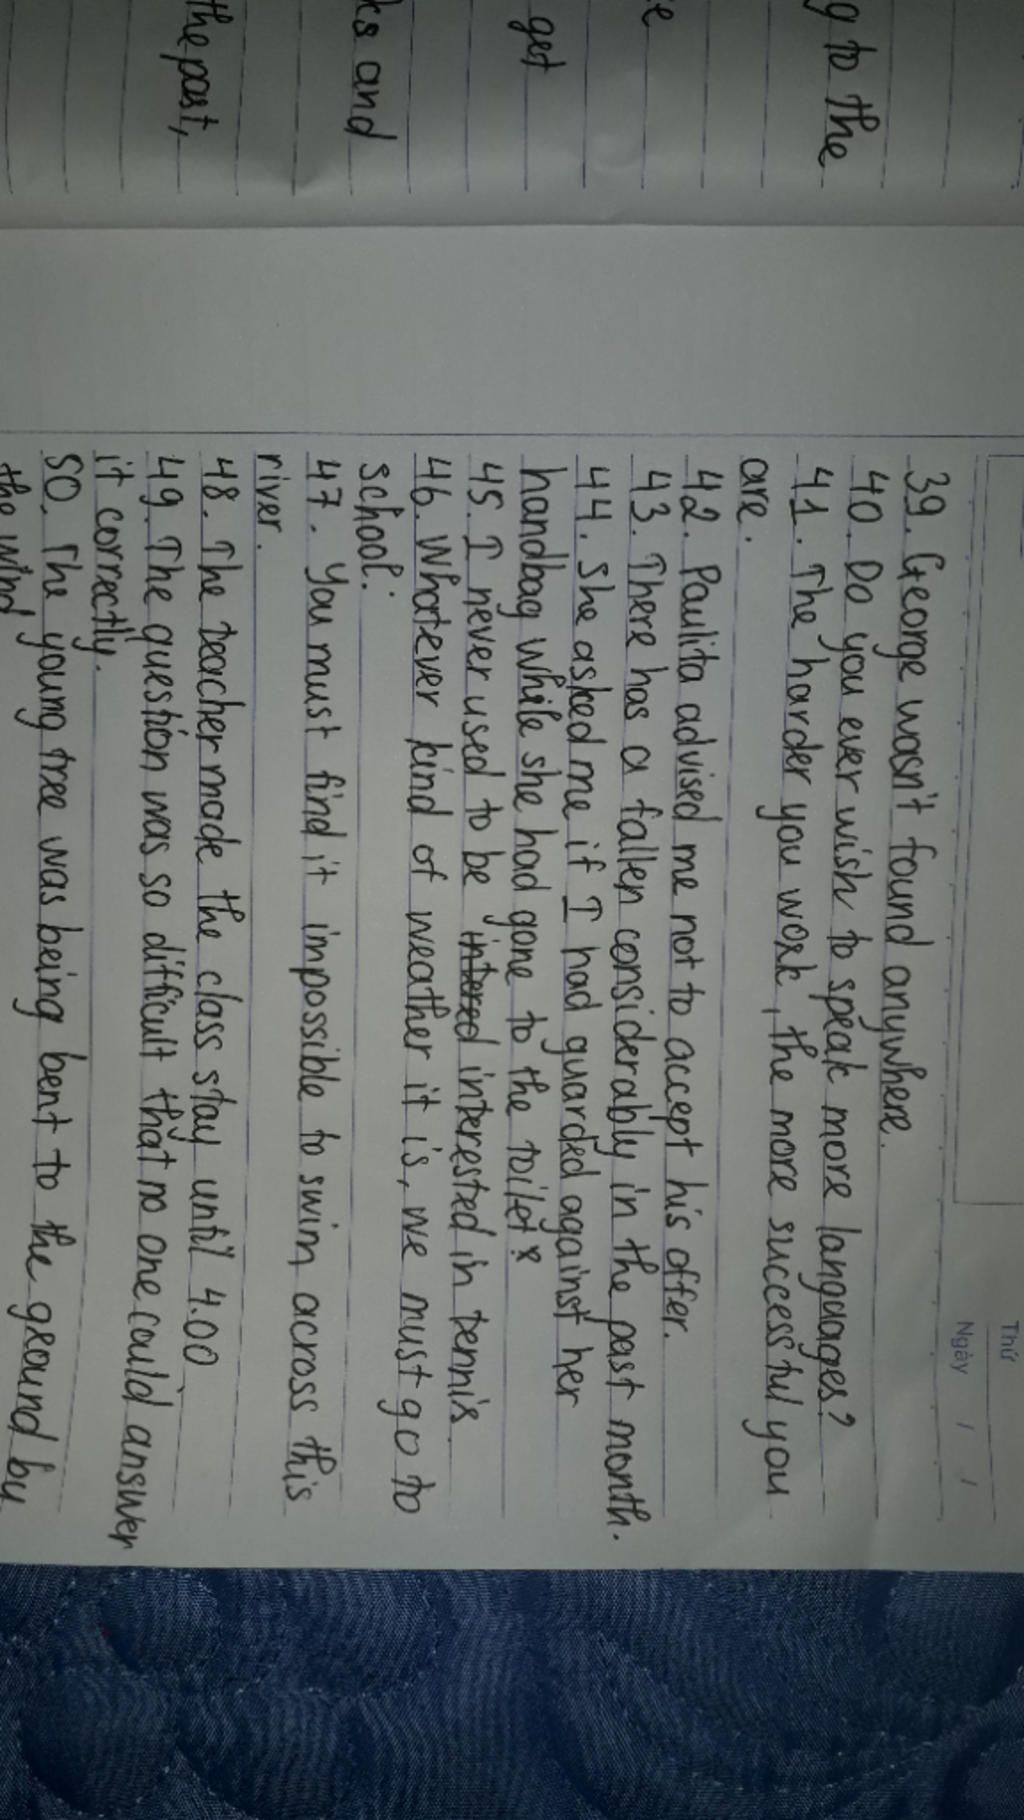 g to the
e
get
ks and
the past,
Thứ
Ngày / /
39. George wasn't found anywhere.
40. Do you ever wish to speak more languages?
41. The harder you work, the more successful you
are.
42. Paulita advised me not to accept his offer.
43. There has a fallen considerably in the past month.
44. She asked me if I had guarded against her
handbag while she had gone to the toilet.
45. I never used to be intered interested in tennis.
46. Whatever kind of weather it is, we must go to
school.
47. You must find it impossible to swim across this
river.
48. The teacher made the class stay until 4.00
49. The question was so difficult that no one could answer
it correctly.
50. The young tree was being bent to the ground by
the wind